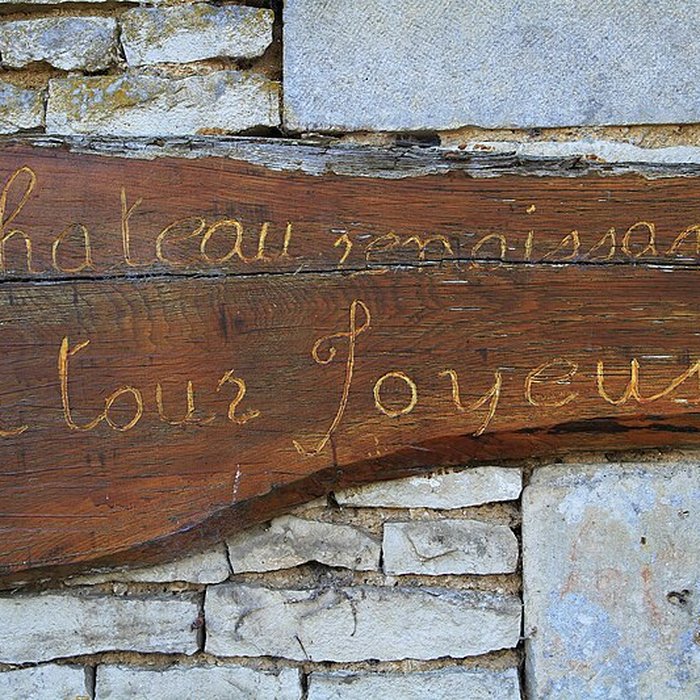 Chateau renaissan
tour Joyeus